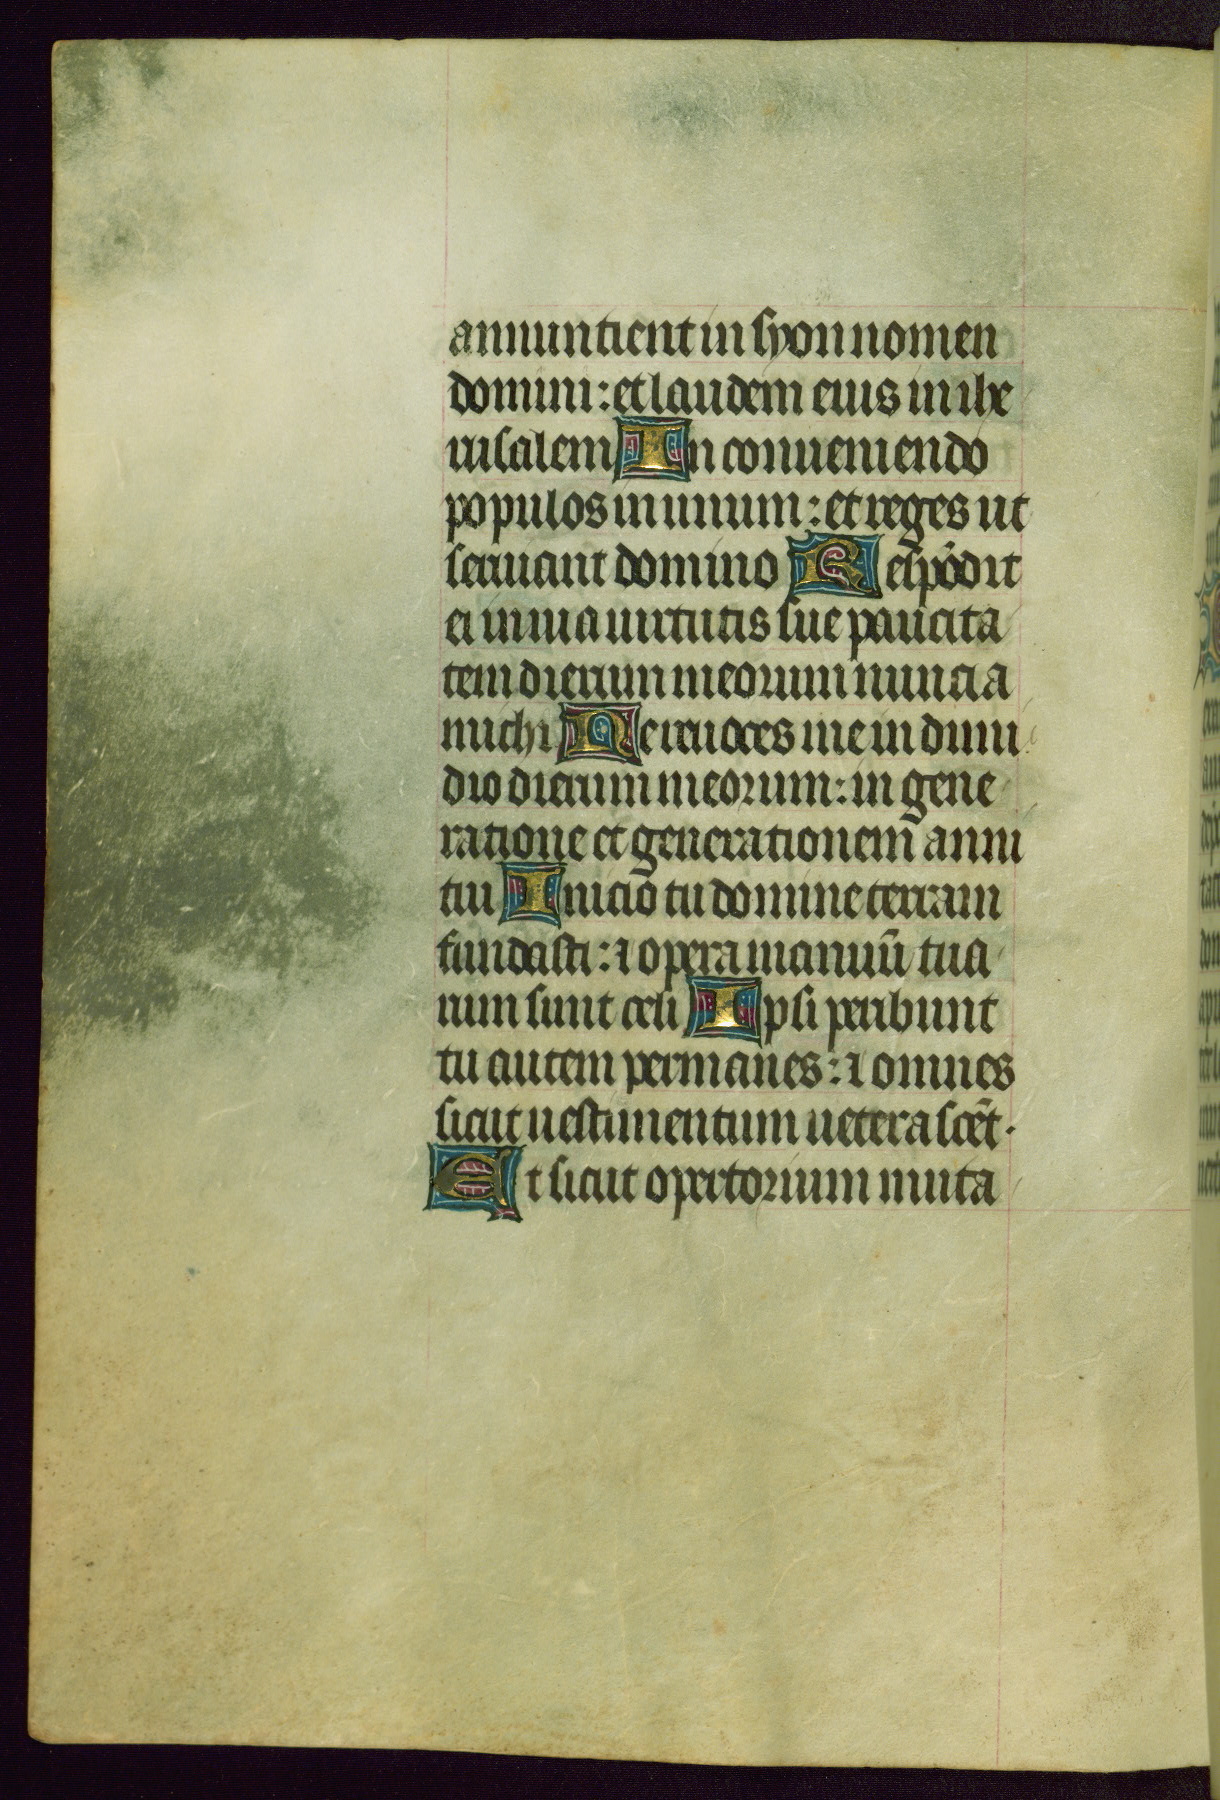 annuntient in syon nomen
domini: et laudem eius in ihe
rusalem In conueniendo
populos in unum: et reges ut
seruiant domino Respōdit
ei in uia uirtutis sue paucita
tem dierum meorum nuncia
michi Ne reuoces me in dimi
dio dierum meorum: in gene
ratione et generationem̄ anni
tui Inicio tu domine terram
fundasti: ⁊ opera manuū tua
rum sunt celi Ipsi peribunt
tu autem permanes: ⁊ omnes
sicut uestimentum ueterascēt.
Et sicut opertorium muta